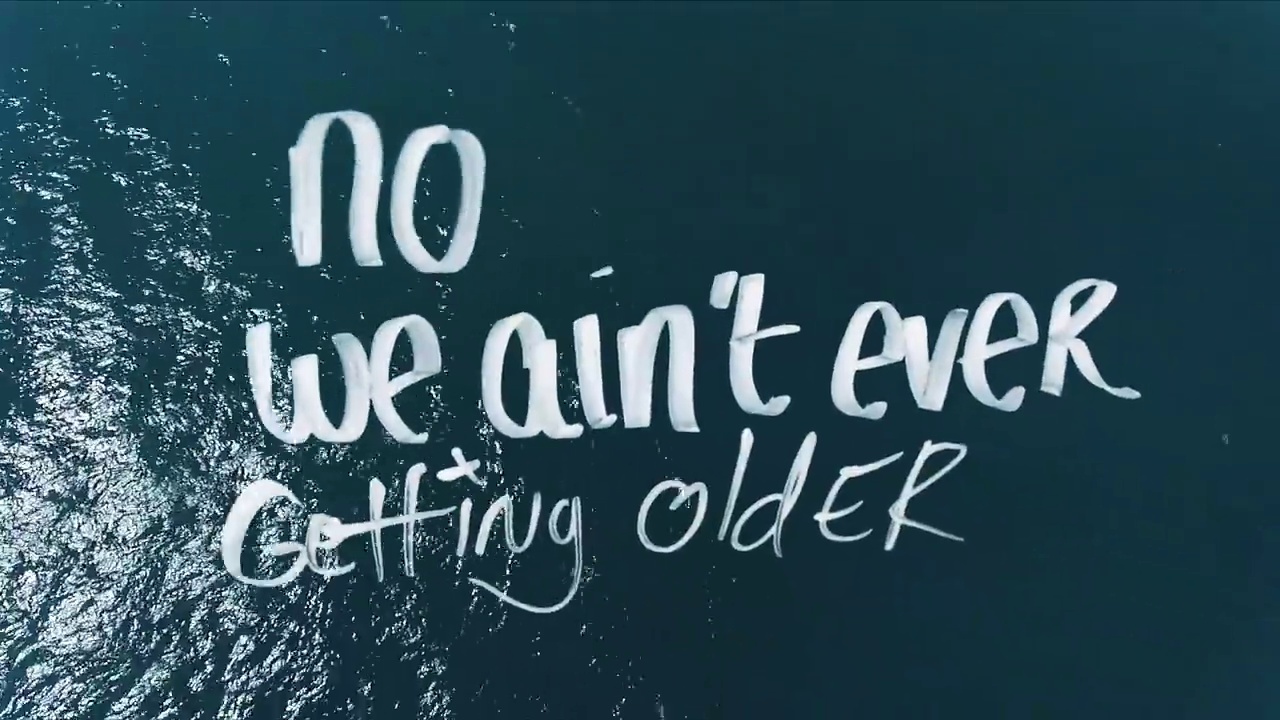 no
we ain't ever
Getting OldER